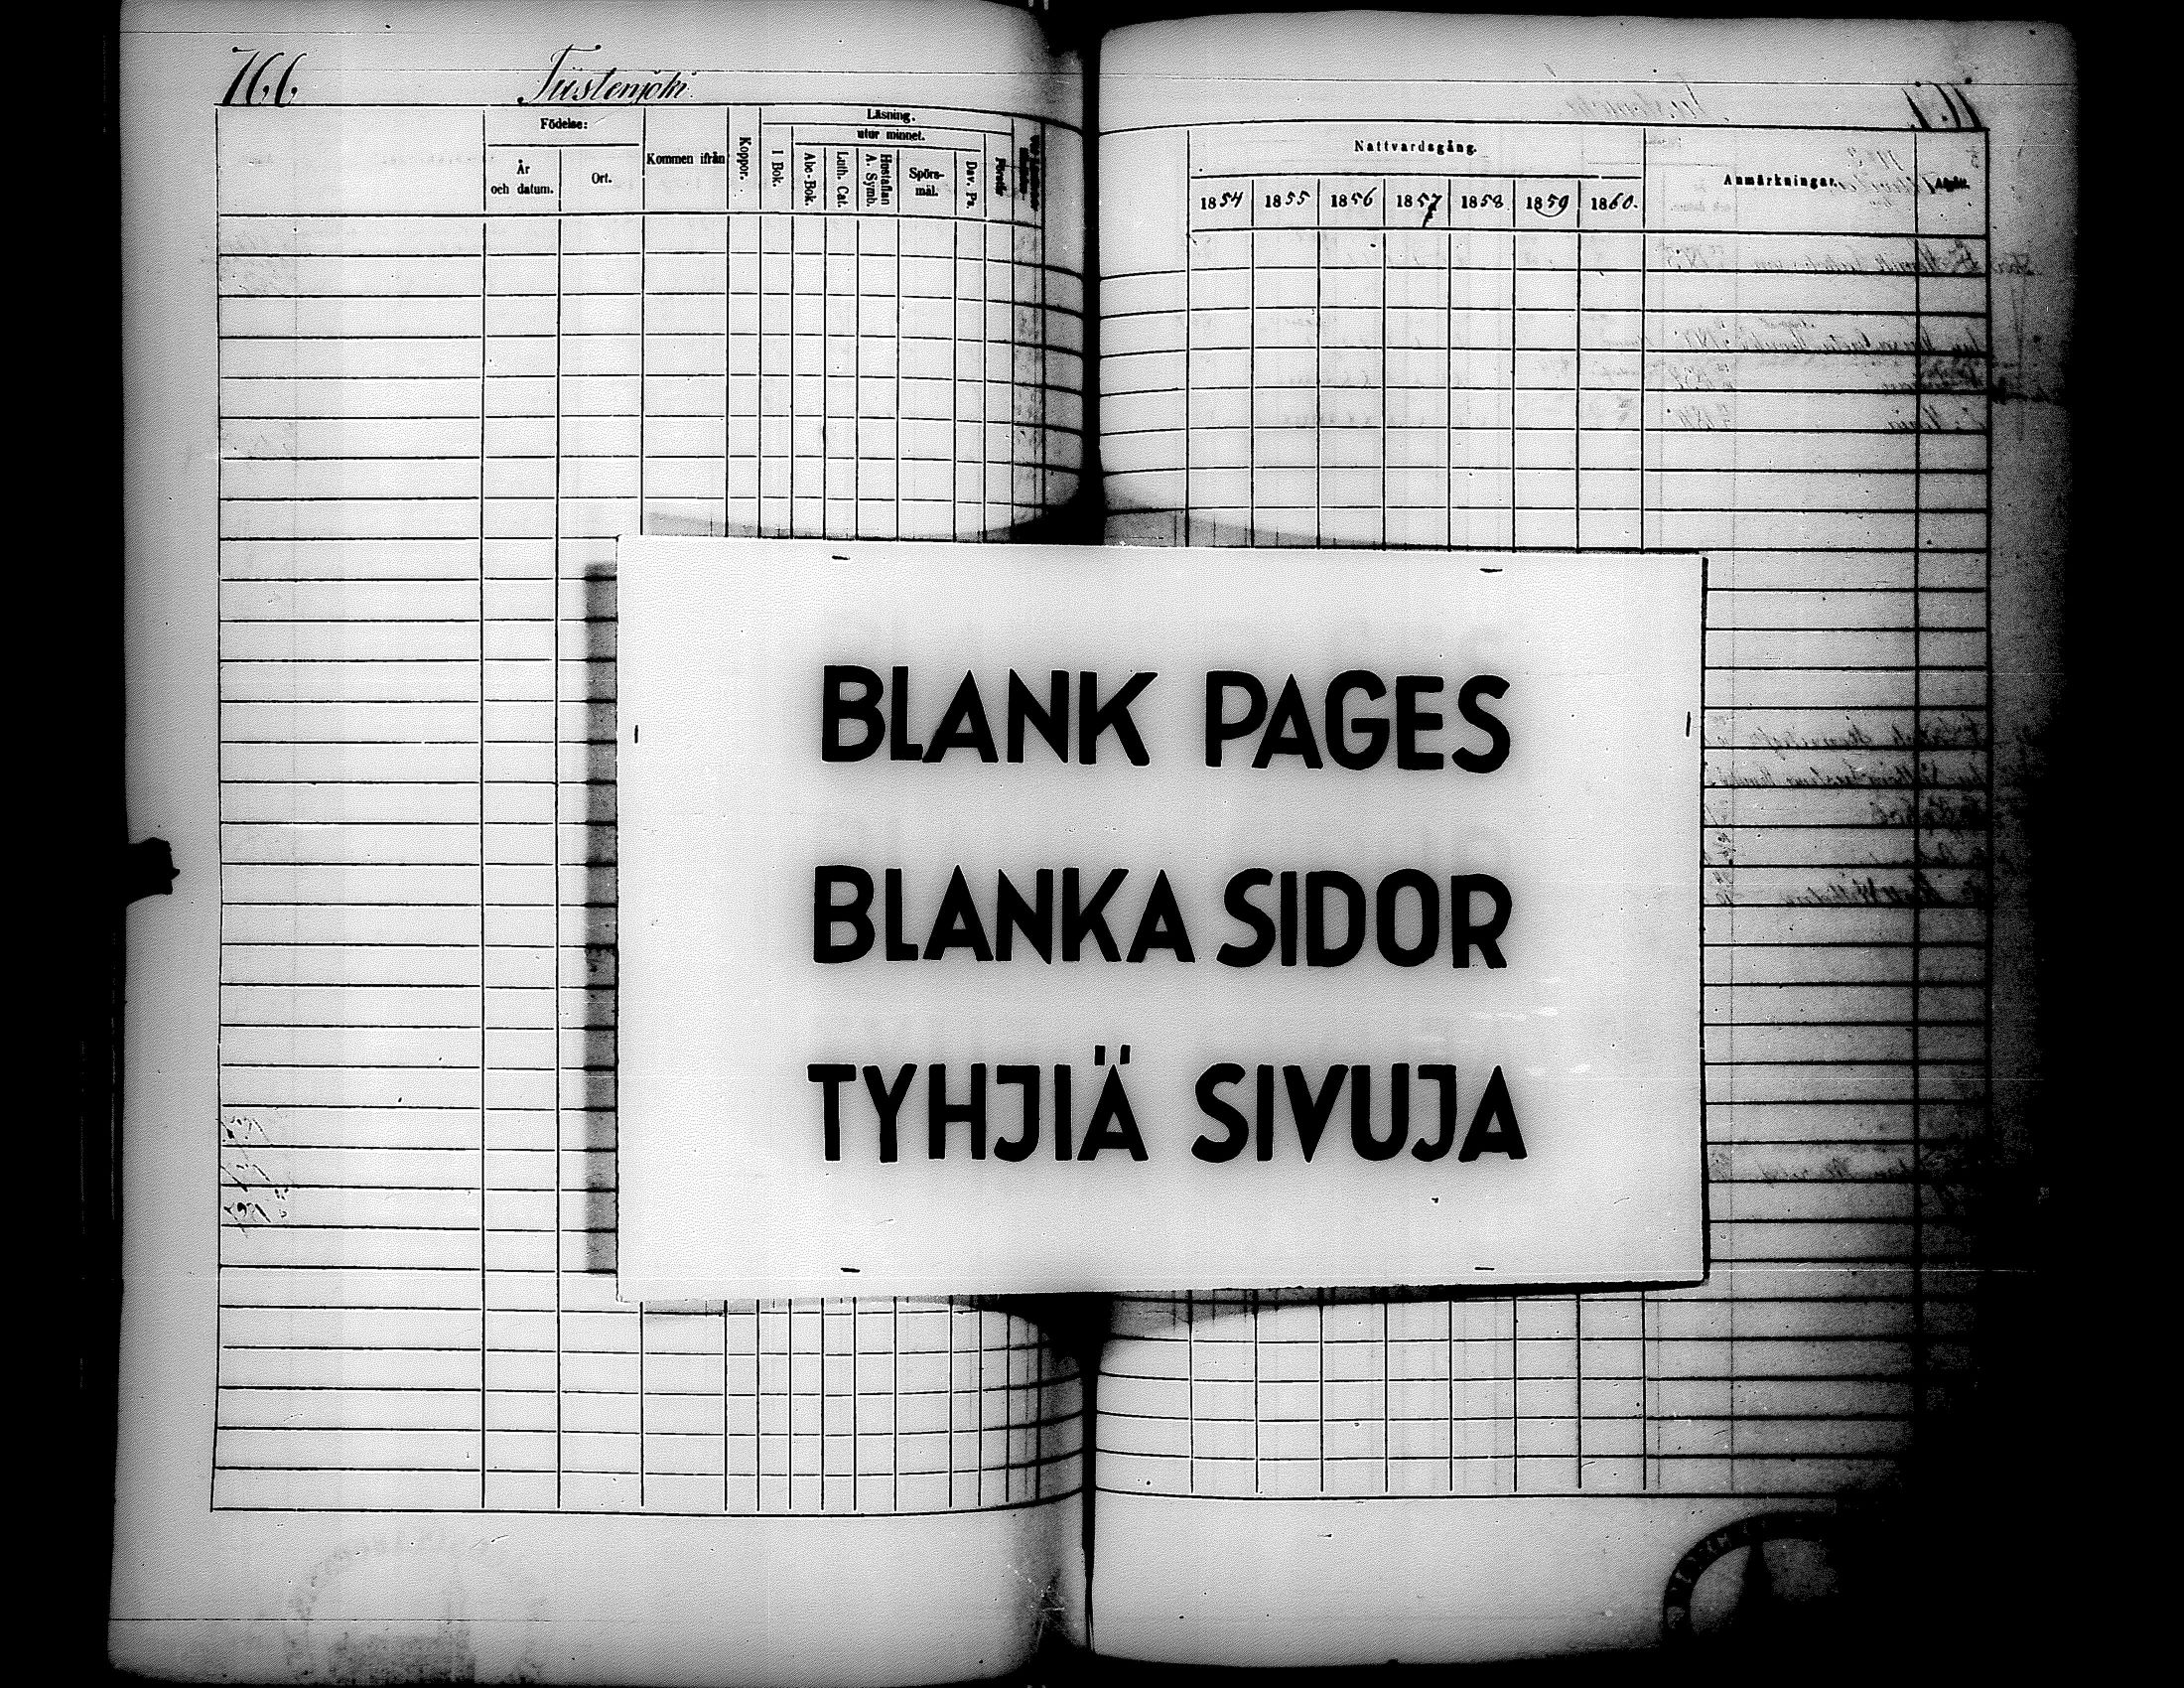 766
Tiistenjoki
Födelse:
År och datum.
Ort.
Kommen ifrån
Koppor.
Läsning.
I Bok.
utur minnet.
Abc-Bok.
Luth. Cat.
Hustaflan A. Symb.
Spörs-mål.
Dav. Ps.
Förstår
Nattvardsgång.
1854 1855 1856 1857 1858 1859 1860.
Anmärkningar.
Afgått.
BLANK PAGES
BLANKA SIDOR
TYHJIÄ SIVUJA